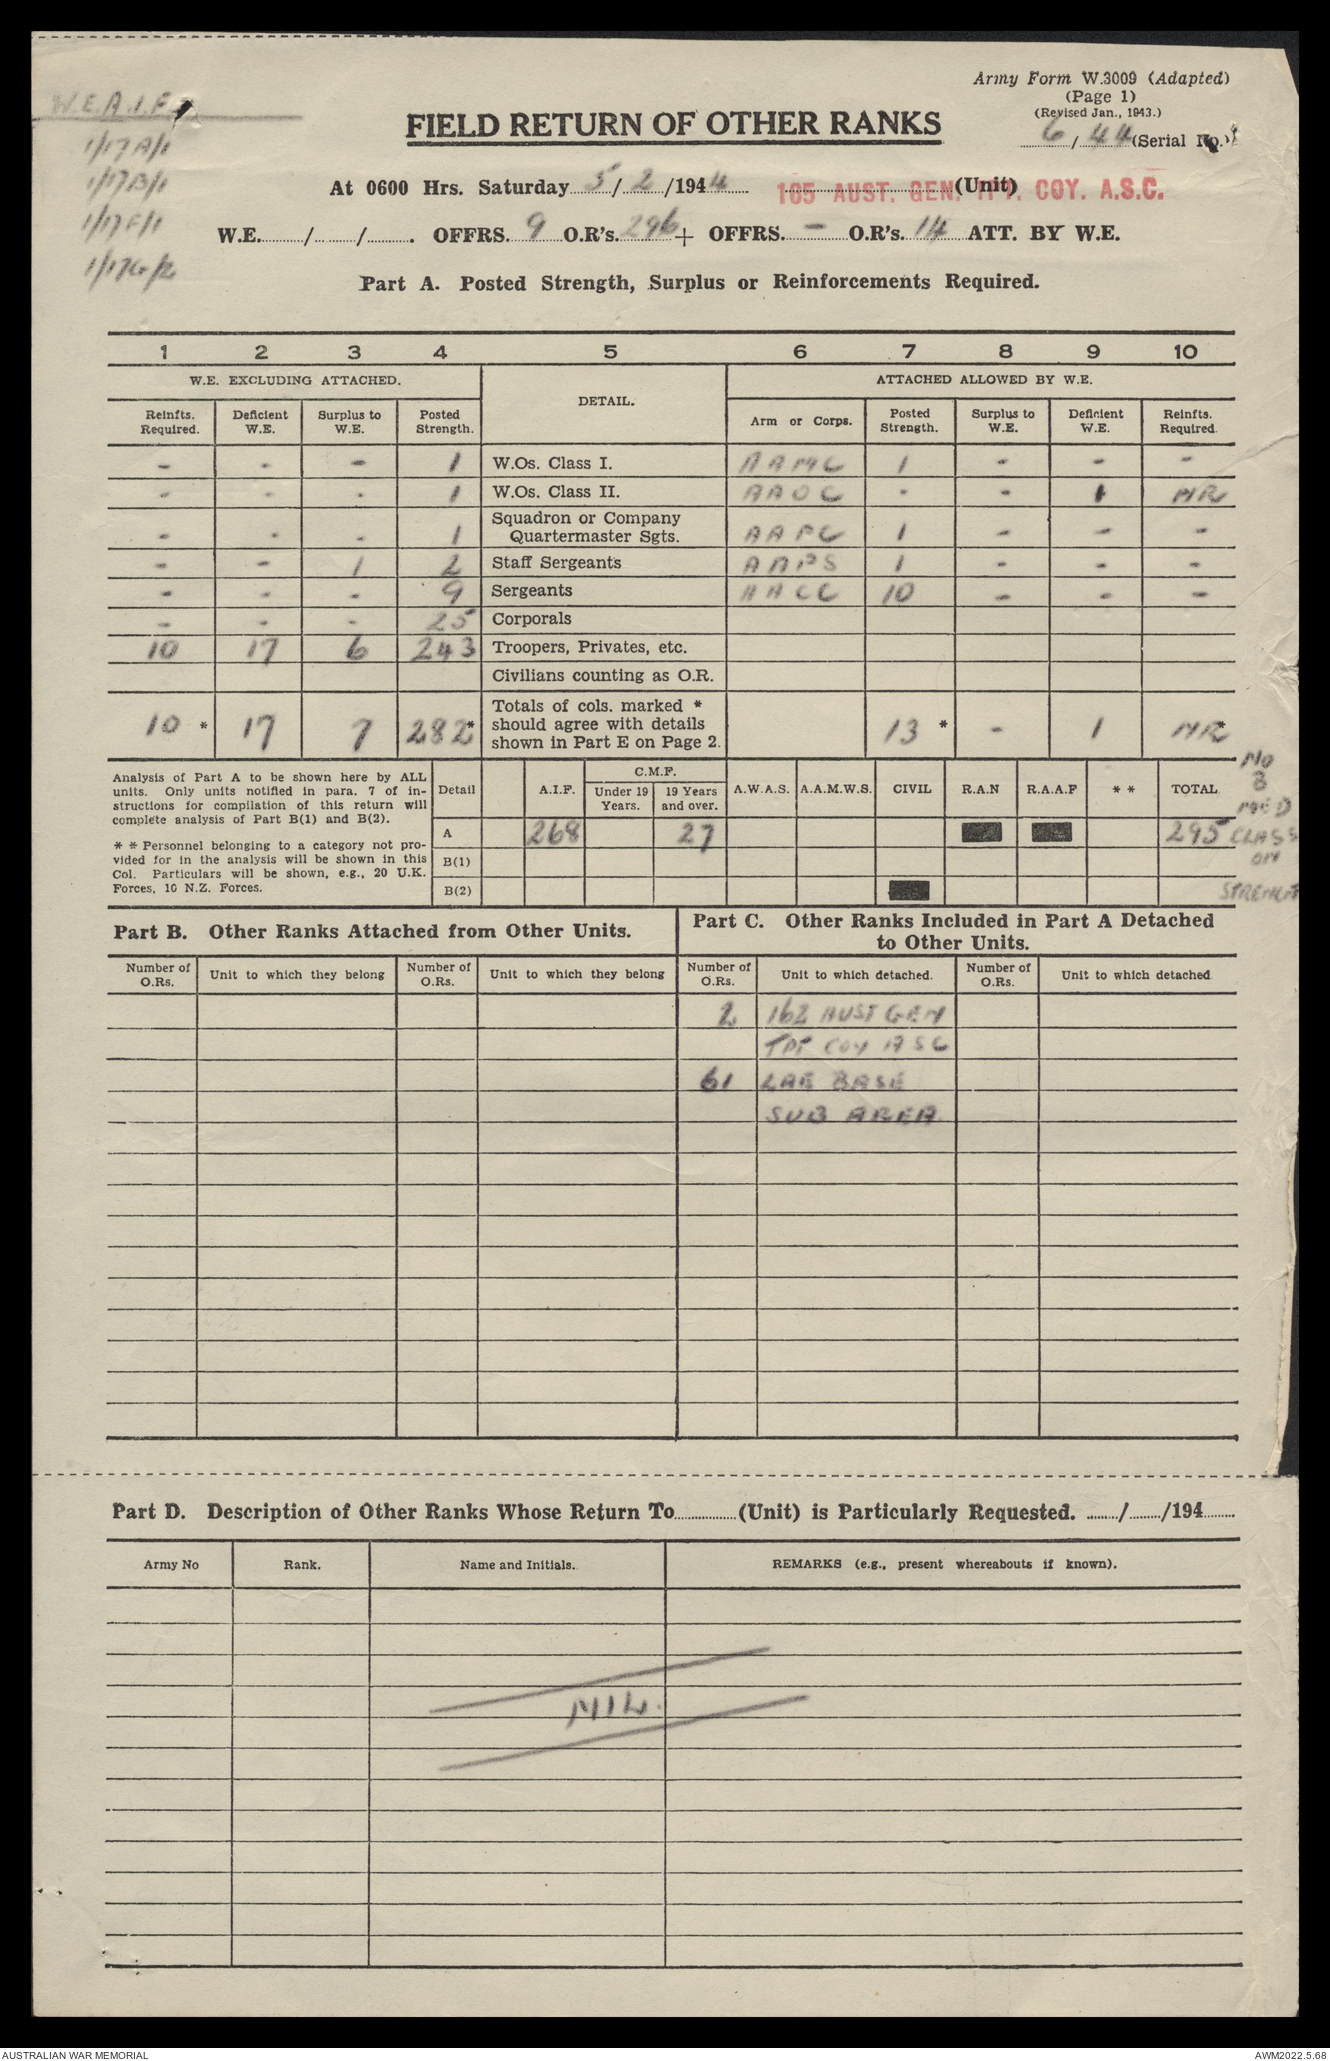 Army Form W.3009 (Adapted)
(Page 1)
(Revised Jan., 1943.)
6/44 (Serial No.)
W.E.A.I.F.
1/17A/1
1/17B/1
1/17F/1
1/17G/2
FIELD RETURN OF OTHER RANKS
At 0600 Hrs. Saturday 5/2/1944 105 AUST. GEN. TPT. COY. A.S.C. (Unit)
W.E. / / . OFFRS. 9 O.R's. 296 + OFFRS. - O.R's. 14 ATT. BY W.E.
Part A. Posted Strength, Surplus or Reinforcements Required.
1 2 3 4 5 6 7 8 9 10
W.E. EXCLUDING ATTACHED. DETAIL. ATTACHED ALLOWED BY W.E.
Reinfts. Required. Deficient W.E. Surplus to W.E. Posted Strength. Arm or Corps. Posted Strength. Surplus to W.E. Deficient W.E. Reinfts. Required.
- - - 1 W.Os. Class I. AAMC 1 - - -
- - - 1 W.Os. Class II. AAOC - - 1 NR
- - - 1 Squadron or Company Quartermaster Sgts. AAPC 1 - - -
- - 1 2 Staff Sergeants AAPS 1 - - -
- - - 9 Sergeants AACC 10 - - -
- - - 25 Corporals
10 17 6 243 Troopers, Privates, etc.
Civilians counting as O.R.
10 * 17 7 282 * Totals of cols. marked * should agree with details shown in Part E on Page 2. 13 * - 1 NR *
Analysis of Part A to be shown here by ALL
units. Only units notified in para. 7 of in-
structions for compilation of this return will
complete analysis of Part B(1) and B(2).
* * Personnel belonging to a category not pro-
vided for in the analysis will be shown in this
Col. Particulars will be shown, e.g., 20 U.K.
Forces, 10 N.Z. Forces.
Detail A.I.F. C.M.F. Under 19 Years. 19 Years and over. A.W.A.S. A.A.M.W.S. CIVIL R.A.N R.A.A.F * * TOTAL
A 268 27 295
B(1)
B(2)
NO
B
MED
CLASS
ON
STRENGTH
Part B. Other Ranks Attached from Other Units.
Part C. Other Ranks Included in Part A Detached
to Other Units.
Number of O.Rs. Unit to which they belong Number of O.Rs. Unit to which they belong Number of O.Rs. Unit to which detached. Number of O.Rs. Unit to which detached
2 162 AUST GEN
TPT COY ASC
61 LAE BASE
SUB AREA
Part D. Description of Other Ranks Whose Return To (Unit) is Particularly Requested. / /194
Army No Rank. Name and Initials. REMARKS (e.g., present whereabouts if known).
NIL.
AUSTRALIAN WAR MEMORIAL
AWM2022.5.68